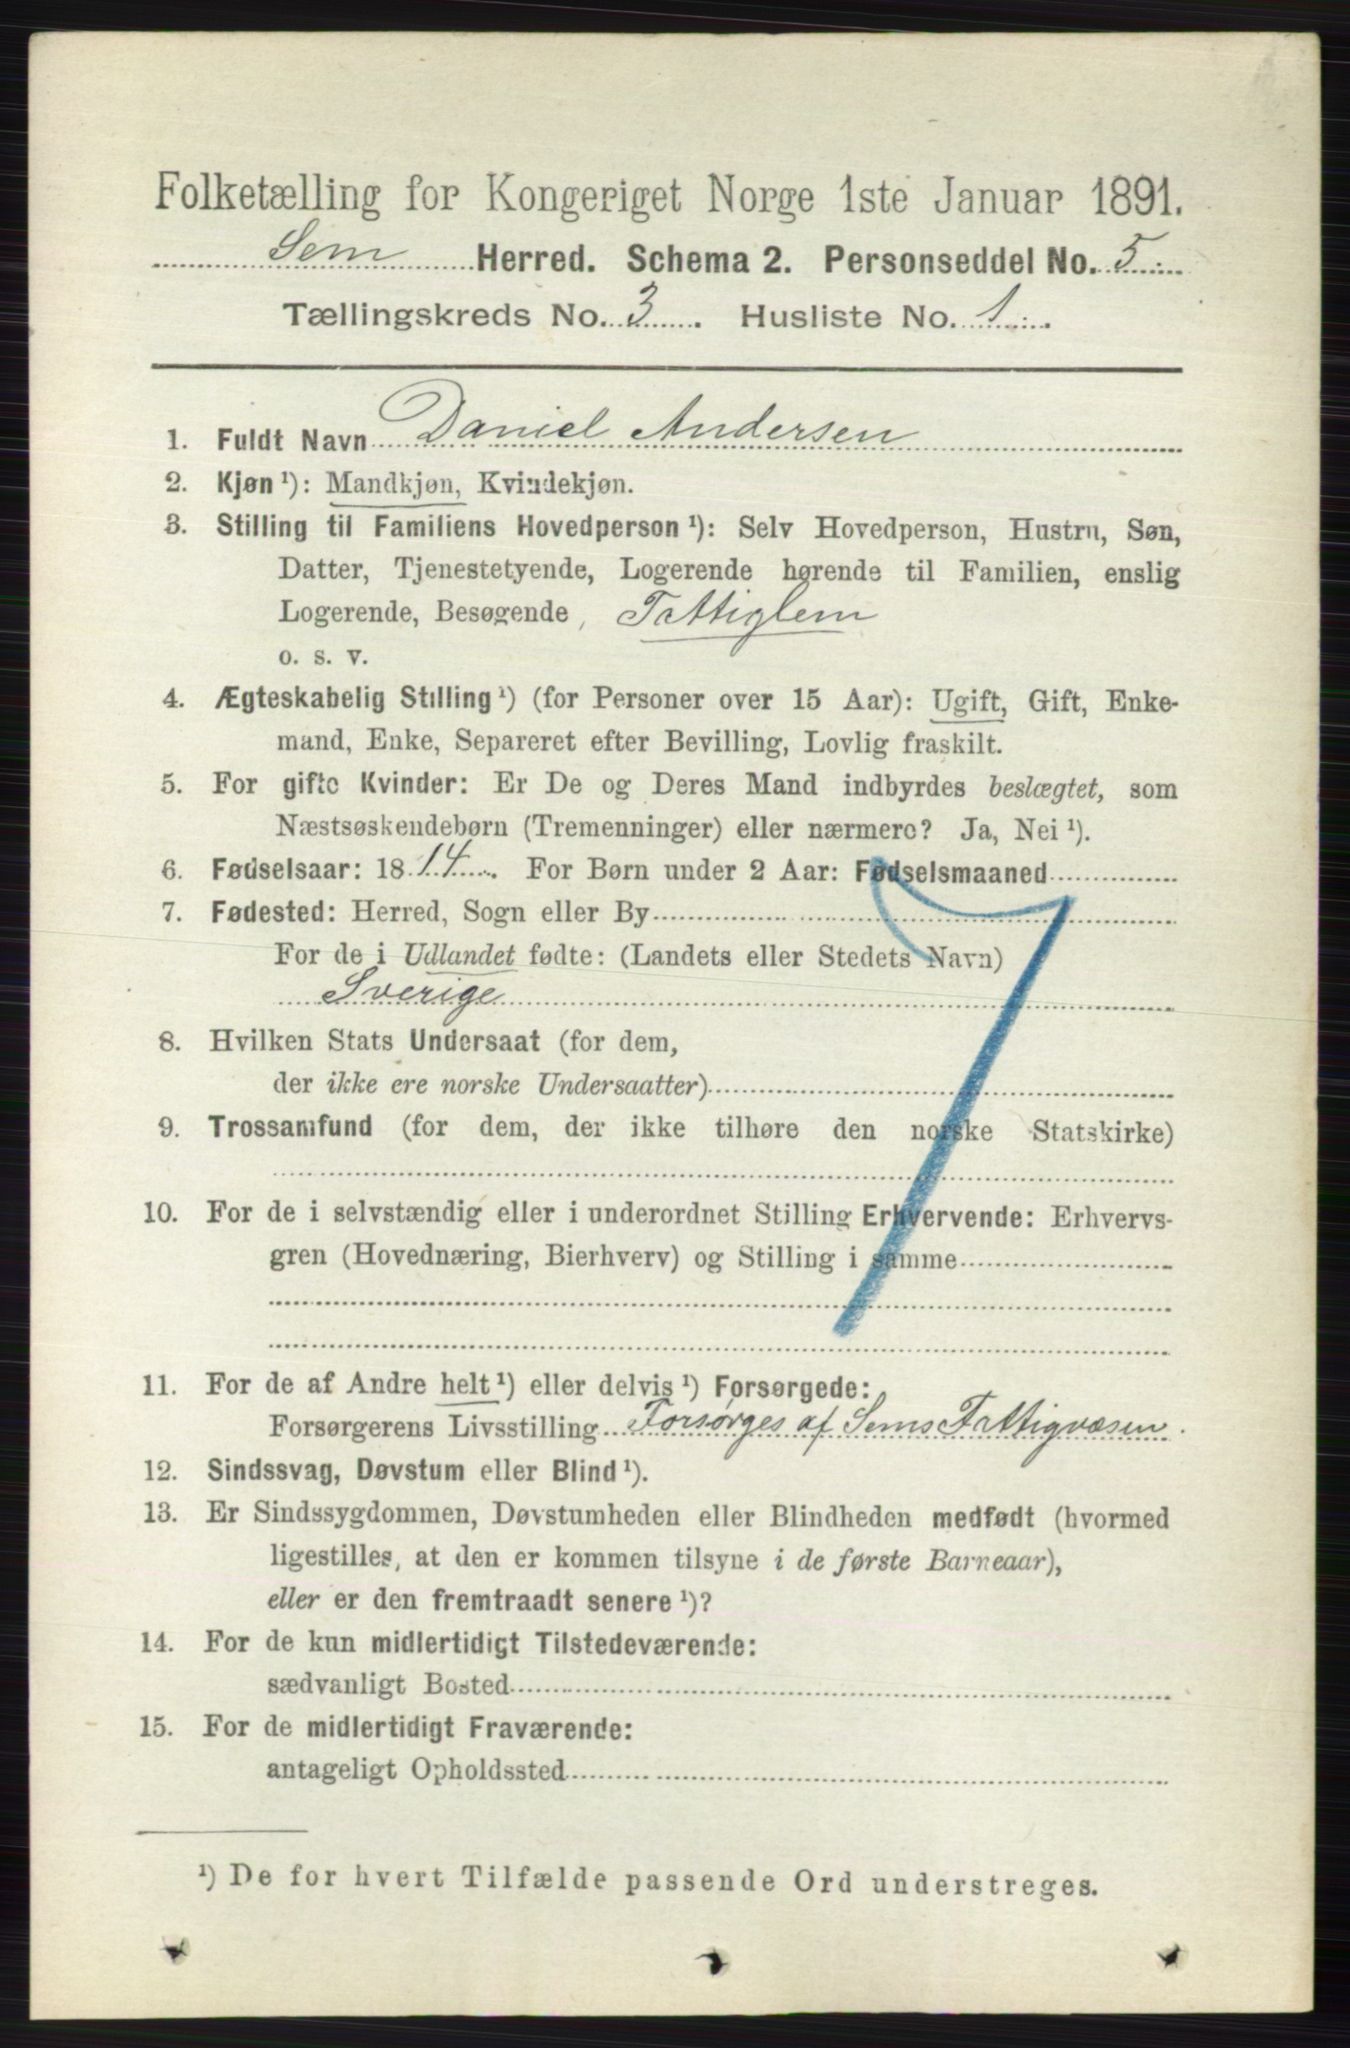 Folketælling for Kongeriget Norge 1ste Januar 1891.
Sem Herred. Schema 2. Personseddel No. 5.
Tællingskreds No. 3. Husliste No. 1.
1. Fuldt Navn Daniel Andersen
2. Kjøn ¹): Mandkjøn, Kvindekjøn.
3. Stilling til Familiens Hovedperson ¹): Selv Hovedperson, Hustru, Søn,
Datter, Tjenestetyende, Logerende hørende til Familien, enslig
Logerende, Besøgende, Fattiglem
o. s. v.
4. Ægteskabelig Stilling ¹) (for Personer over 15 Aar): Ugift, Gift, Enke-
mand, Enke, Separeret efter Bevilling, Lovlig fraskilt.
5. For gifte Kvinder: Er De og Deres Mand indbyrdes beslægtet, som
Næstsøskendebørn (Tremenninger) eller nærmere? Ja, Nei ¹).
6. Fødselsaar: 1814. For Børn under 2 Aar: Fødselsmaaned
7. Fødested: Herred, Sogn eller By
For de i Udlandet fødte: (Landets eller Stedets Navn)
Sverige
8. Hvilken Stats Undersaat (for dem,
der ikke ere norske Undersaatter)
9. Trossamfund (for dem, der ikke tilhøre den norske Statskirke)
10. For de i selvstændig eller i underordnet Stilling Erhvervende: Erhvervs-
gren (Hovednæring, Bierhverv) og Stilling i samme
11. For de af Andre helt ¹) eller delvis ¹) Forsørgede:
Forsørgerens Livsstilling Forsørges af Sems Fattigvæsen.
12. Sindssvag, Døvstum eller Blind ¹).
13. Er Sindssygdommen, Døvstumheden eller Blindheden medfødt (hvormed
ligestilles, at den er kommen tilsyne i de første Barneaar),
eller er den fremtraadt senere ¹)?
14. For de kun midlertidigt Tilstedeværende:
sædvanligt Bosted
15. For de midlertidigt Fraværende:
antageligt Opholdssted
¹) De for hvert Tilfælde passende Ord understreges.